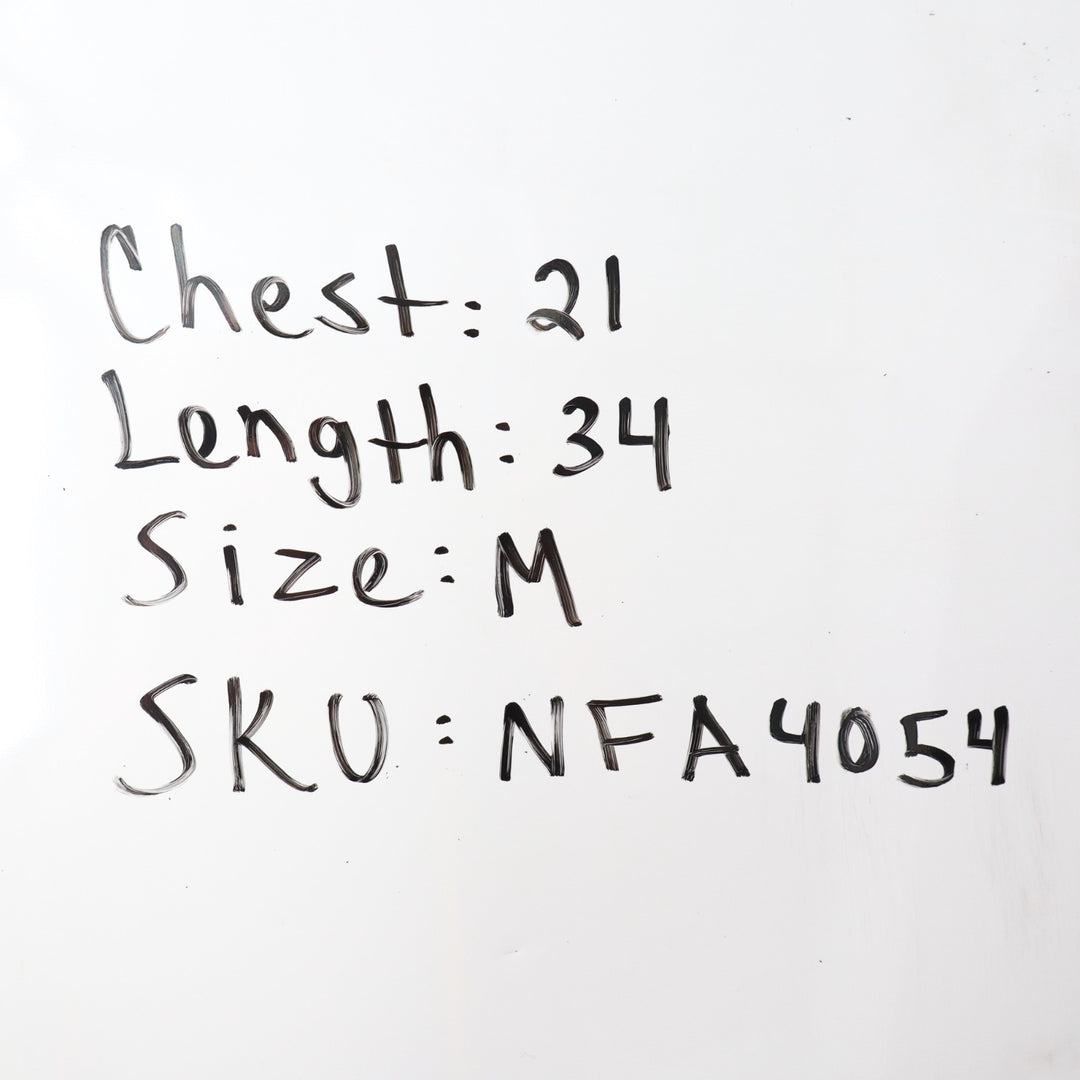 Chest: 21
Length: 34
Size: M
SKU: NFA4054